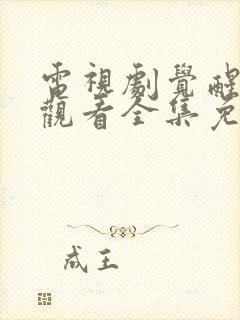 電視劇覺醒
觀看全集免
成王